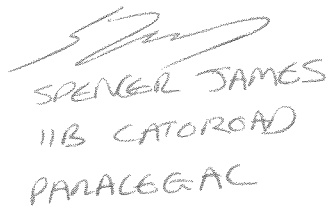 SPENCER JAMES
11B CATOROAD
PARALEGAL